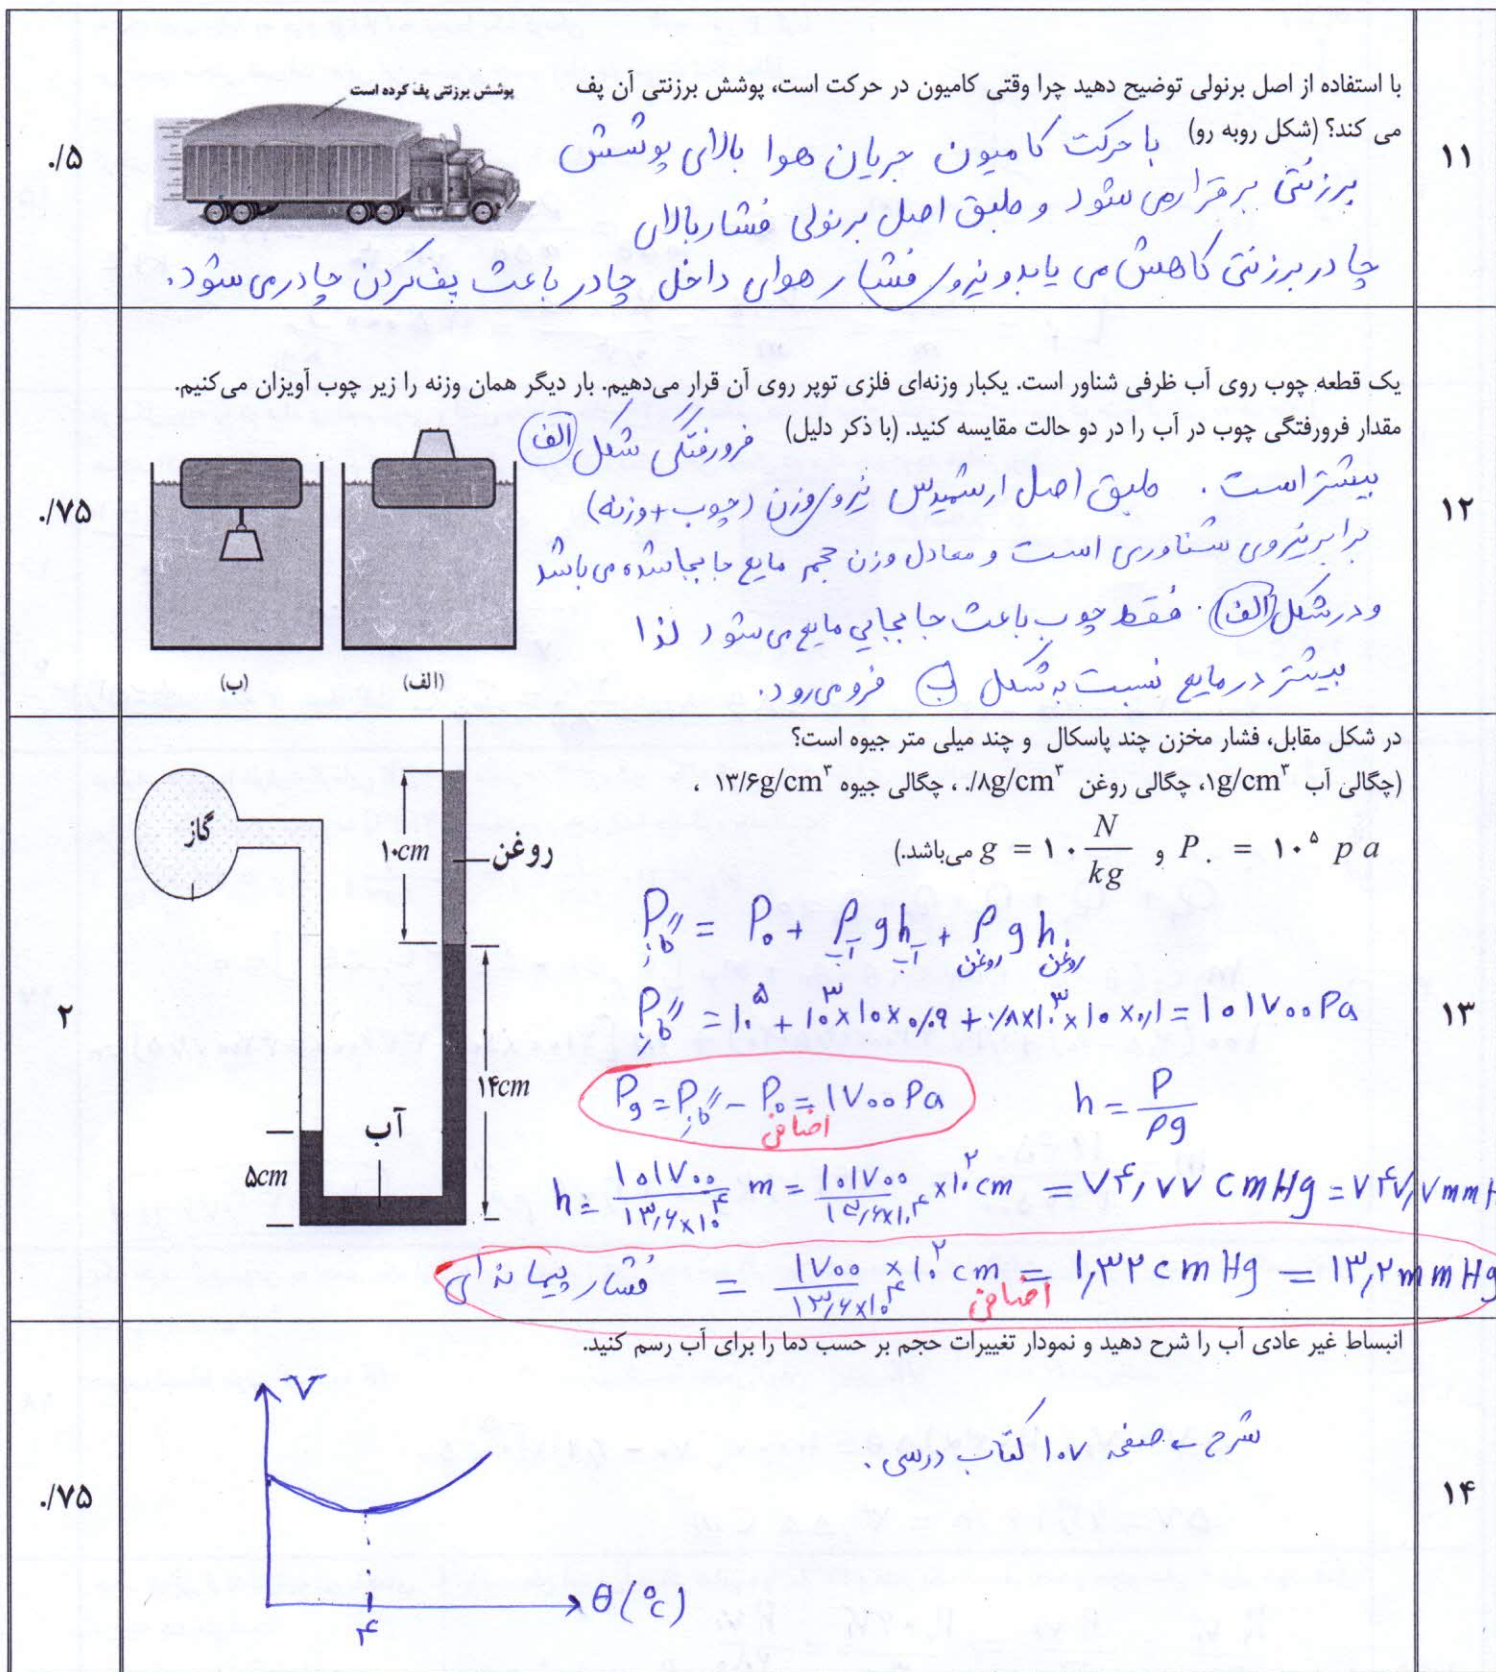 ۱۱
با استفاده از اصل برنولی توضیح دهید چرا وقتی کامیون در حرکت است، پوشش برزنتی آن پف
می کند؟ (شکل روبه رو)
پوشش برزنتی پف کرده است
با حرکت کامیون جریان هوا بالای پوشش
برزنتی برقرار می شود و طبق اصل برنولی فشار بالای
چادر برزنتی کاهش می یابد و نیروی فشار هوای داخل چادر باعث پف کردن چادر می شود.
./۵
۱۲
یک قطعه چوب روی آب ظرفی شناور است. یکبار وزنه‌ای فلزی توپر روی آن قرار می‌دهیم. بار دیگر همان وزنه را زیر چوب آویزان می‌کنیم.
مقدار فرورفتگی چوب در آب را در دو حالت مقایسه کنید. (با ذکر دلیل)
فرورفتگی شکل الف
بیشتر است. طبق اصل ارشمیدس نیروی وزن (چوب + وزنه)
برابر نیروی شناوری است و معادل وزن حجم مایع جابجا شده می باشد
و در شکل الف. فقط چوب باعث جابجایی مایع می شود لذا
بیشتر در مایع نسبت به شکل ب فرو می رود.
(الف)
(ب)
./۷۵
۱۳
در شکل مقابل، فشار مخزن چند پاسکال و چند میلی متر جیوه است؟
(چگالی آب ۱g/cm³، چگالی روغن ./۸g/cm³ ، چگالی جیوه ۱۳/۶g/cm³ ،
P. = ۱۰⁵ pa و g = ۱۰ N/kg می‌باشد.)
گاز
۱۰cm
روغن
۱۴cm
آب
۵cm
P گاز = P₀ + ρ آب g h آب + ρ روغن g h روغن
P گاز = ۱۰⁵ + ۱۰³×۱۰×۰/۰۹ + ۰/۸×۱۰³×۱۰×۰/۱ = ۱۰۱۷۰۰ Pa
Pg = P گاز - P₀ = ۱۷۰۰ Pa
اضافی
h = P/ρg
h = ۱۰۱۷۰۰/۱۳٫۶×۱۰⁴ m = ۱۰۱۷۰۰/۱۳٫۶×۱۰⁴ ×۱۰² cm = ۷۴٫۷۷ cmHg = ۷۴۷٫۷ mmH
فشار پیمانه ای = ۱۷۰۰/۱۳٫۶×۱۰⁴ ×۱۰² cm = ۱٫۳۲ cm Hg = ۱۳٫۲ mm Hg
اضافی
۲
۱۴
انبساط غیر عادی آب را شرح دهید و نمودار تغییرات حجم بر حسب دما را برای آب رسم کنید.
شرح ← صفحه ۱۰۷ کتاب درسی.
V
θ (°c)
۴
./۷۵